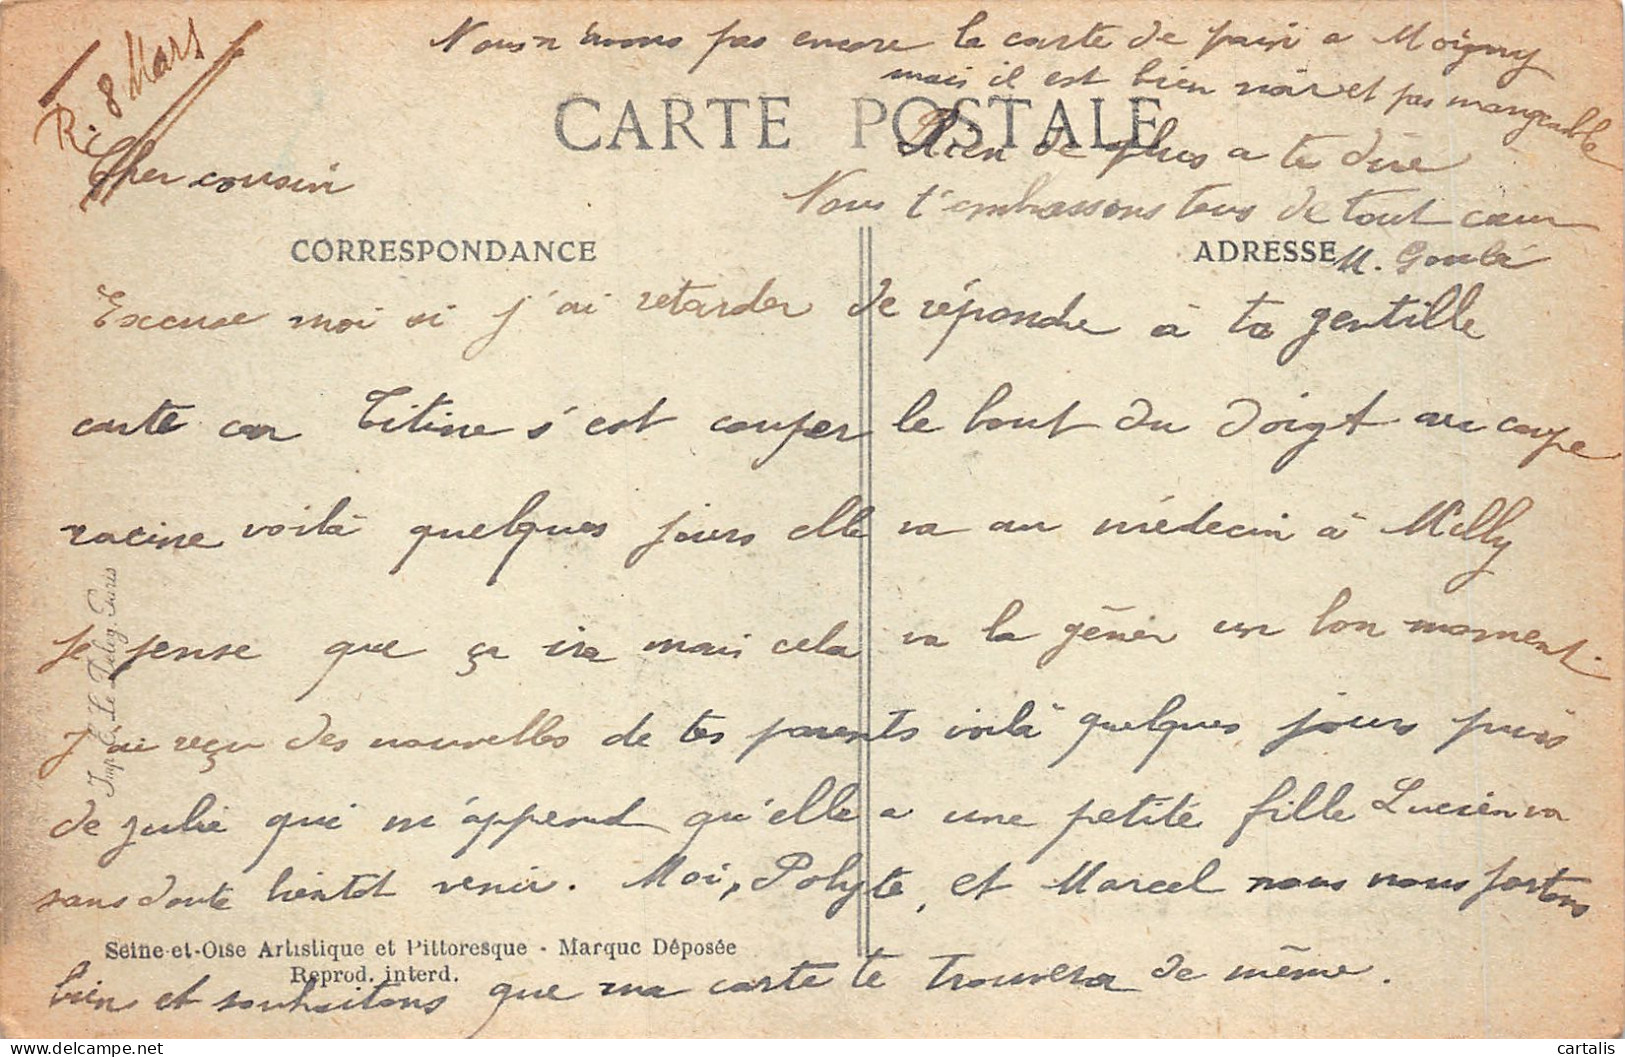 R. 8 Mars
Nous n'avons pas encore la carte de pain a Moigny
mais il est bien noir et pas mangeable
CARTE POSTALE
Rien de plus a te dire
Cher cousin
Nous t'embrassons tous de tout cœur
CORRESPONDANCE
ADRESSE
M. Goulé
Excuse moi si j'ai retarder de répondre à ta gentille
carte car Titine s'est couper le bout du doigt au coupe
racine voilà quelques jours elle va au médecin à Milly
je pense que ça ira mais cela va la gêner un bon moment.
J'ai reçu des nouvelles de tes parents voilà quelques jours puis
de julie qui m'apprend qu'elle a une petite fille Lucien va
sans doute bientot venir. Moi, Polyte, et Marcel nous nous portons
bien et souhaitons que ma carte te trouvera de même.
Seine-et-Oise Artistique et Pittoresque - Marque Déposée
Reprod. interd.
Imp. Le Deley, Paris
cartalis